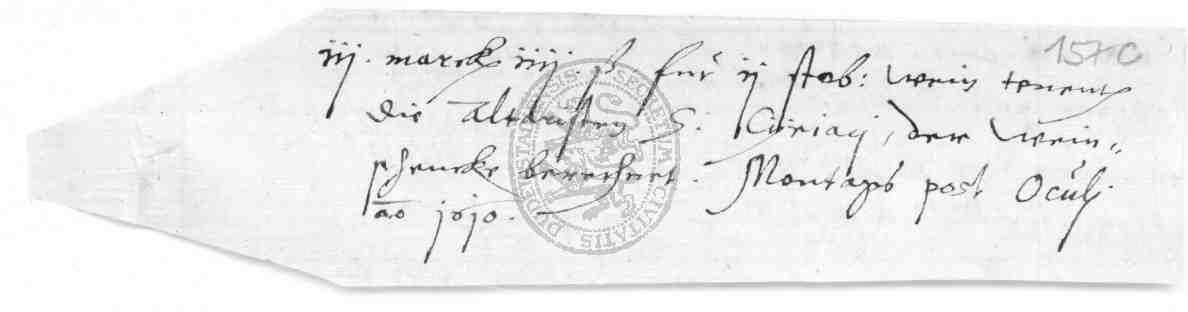 iij. marck iiij. ß für ij stob: wein tenent
die Altaristen S: Ciriaci, der wein„
schencke berechnet. Montags post Oculj
ao 1010.
1570
SECRETUM CIVITATIS DUDERSTADENSIS